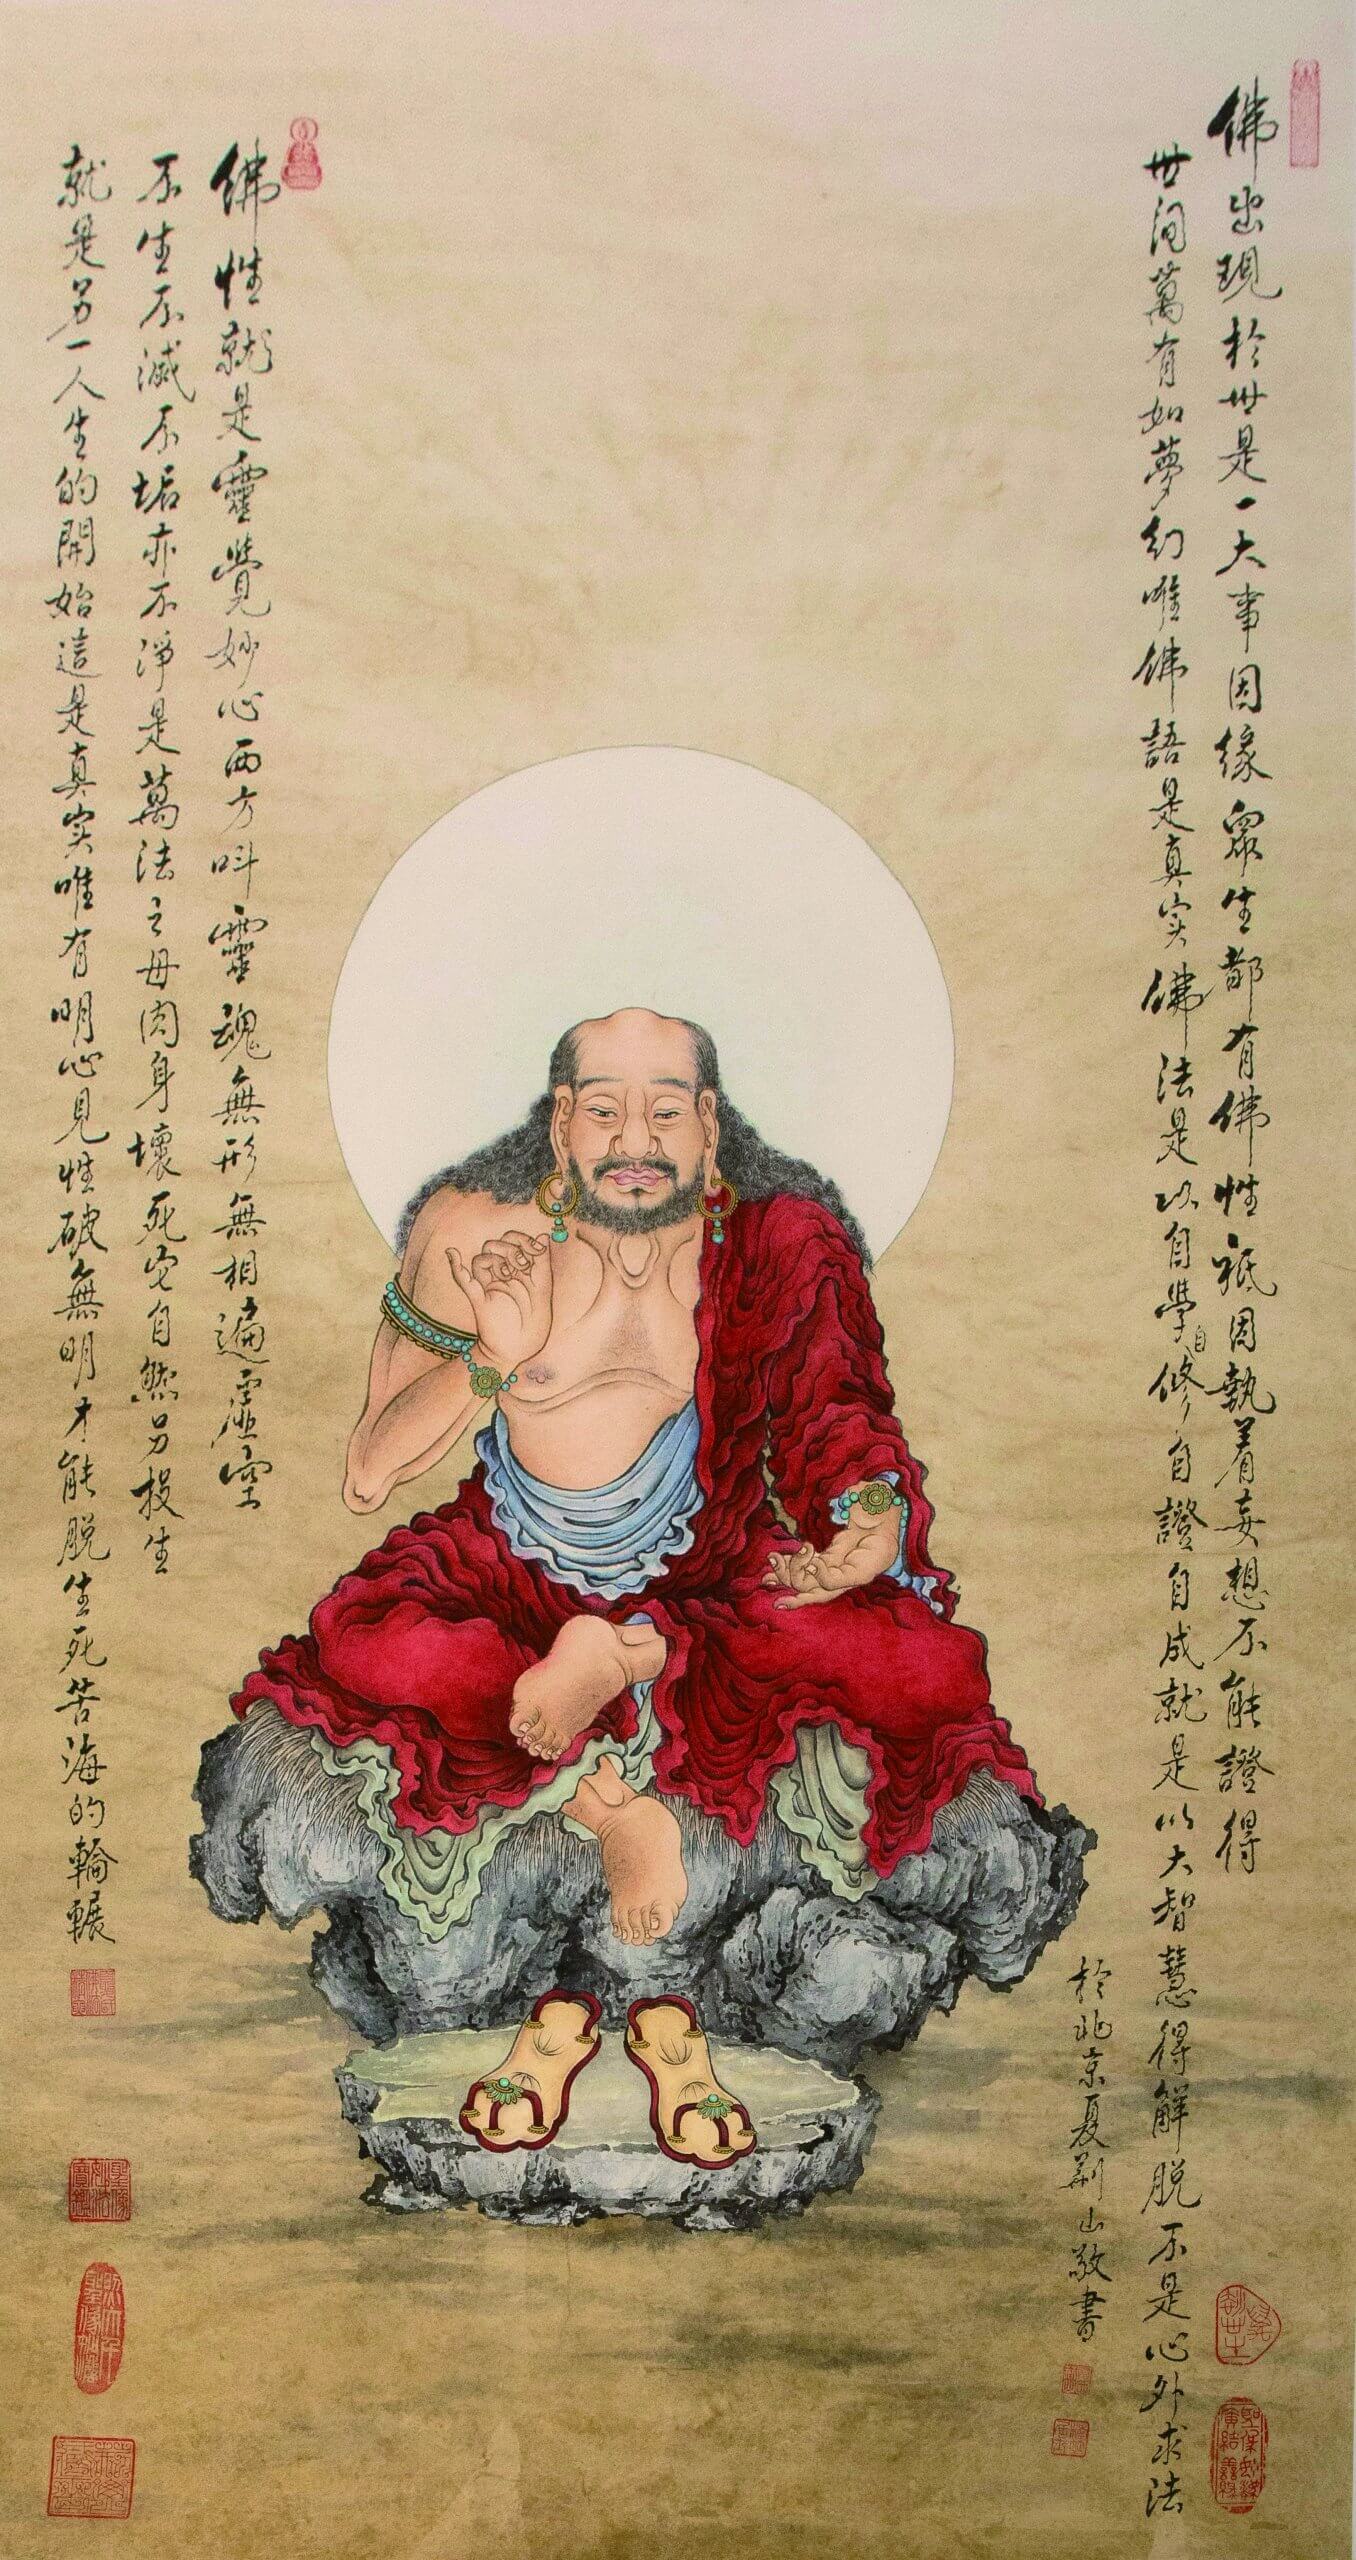 佛出現於世是一大事因緣眾生都有佛性祇因執着妄想不能證得
世间萬有如夢幻唯佛語是真实佛法是以自學自修自證自成就是以大智慧得解脱不是心外求法
於北京夏荆山敬書
佛性就是靈覺妙心西方叫靈魂無形無相遍虛空
不生不滅不垢亦不淨是萬法之母肉身壞死它自然另投生
就是另一人生的開始這是真实唯有明心見性破無明才能脱生死苦海的輪輾